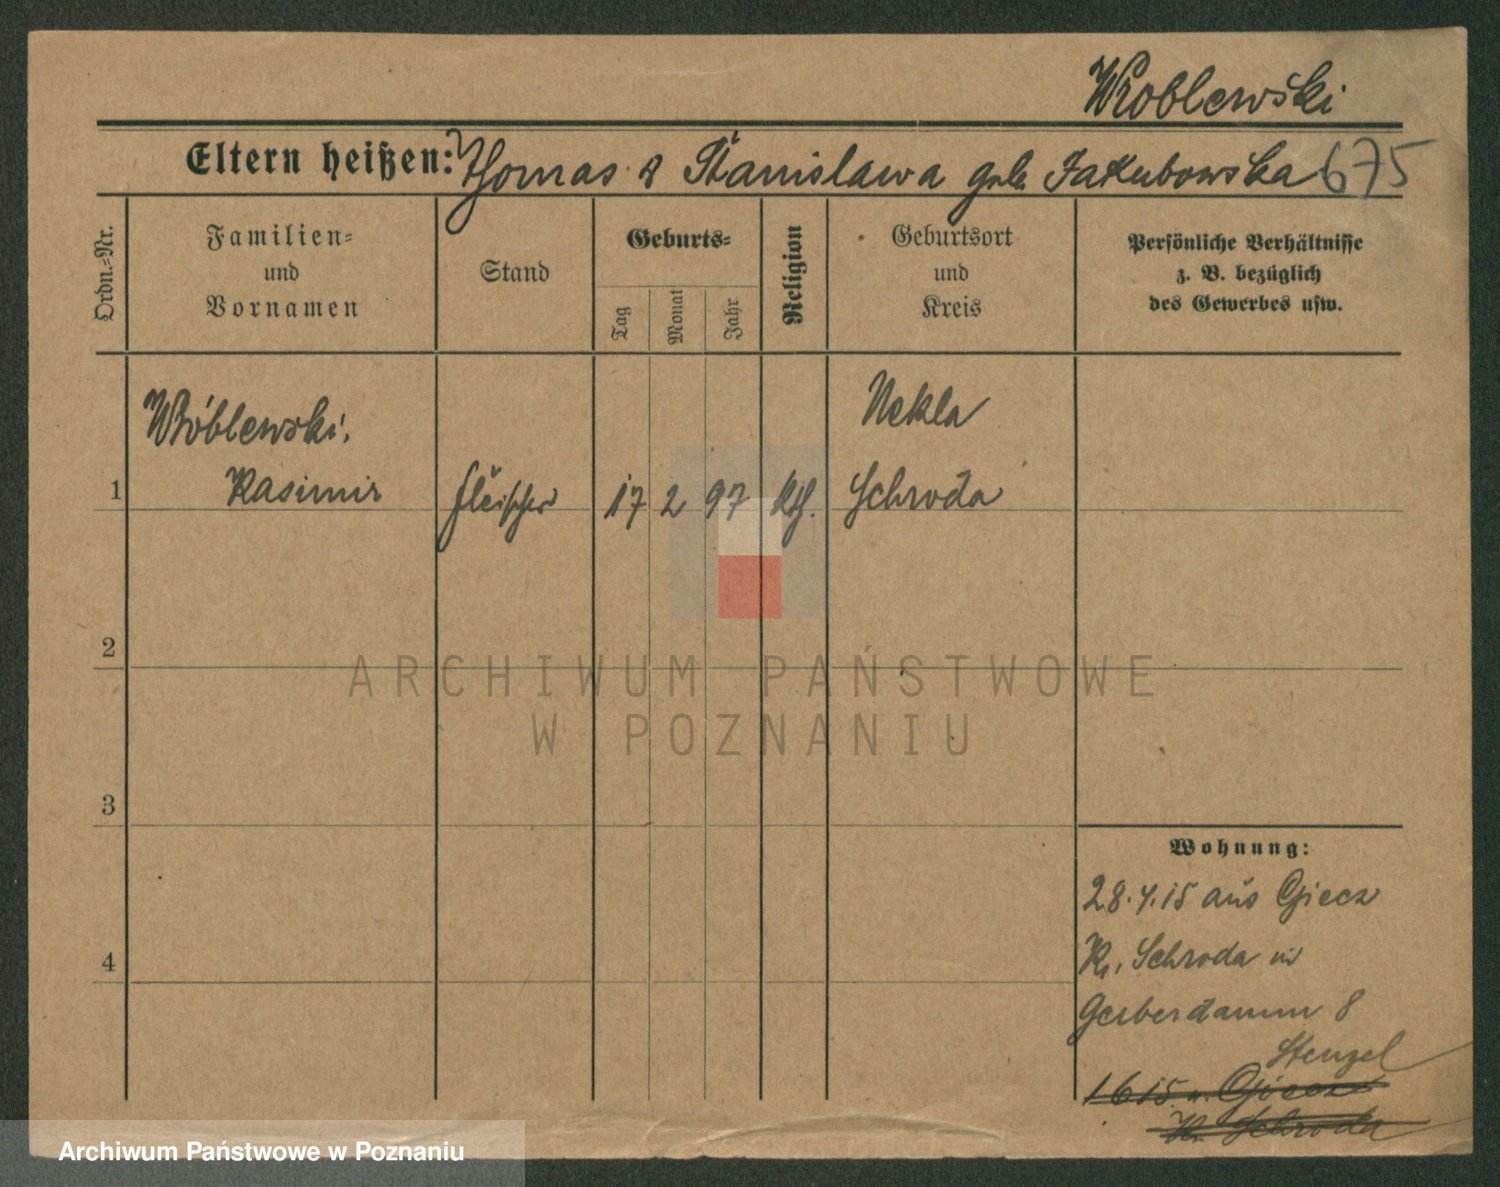 Wroblewski
Eltern heißen: Thomas & Stanislawa geb. Jakubowska 675
Ordn.-Nr.
Familien-
und
Vornamen
Stand
Geburts-
Tag
Monat
Jahr
Religion
Geburtsort
und
Kreis
Persönliche Verhältnisse
z. B. bezüglich
des Gewerbes usw.
Wróblewski,
Nekla
1 Kasimir Fleischer 17 2 97 kth. Schroda
2
ARCHIWUM PAŃSTWOWE
W POZNANIU
3
Wohnung:
28.4.15 aus Giecz
4 Kr. Schroda in
Gerberdamm 8
Stenzel
1 6 15 n. Giecz
Kr. Schroda
Archiwum Państwowe w Poznaniu